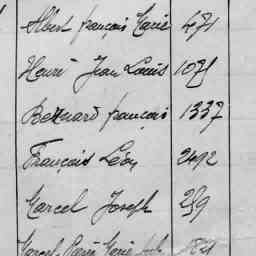 Albert françois Marie 471
Henri Jean Louis 1071
Bernard françois 1337
François Léon 2492
Marcel Joseph 259
Marcel Marie